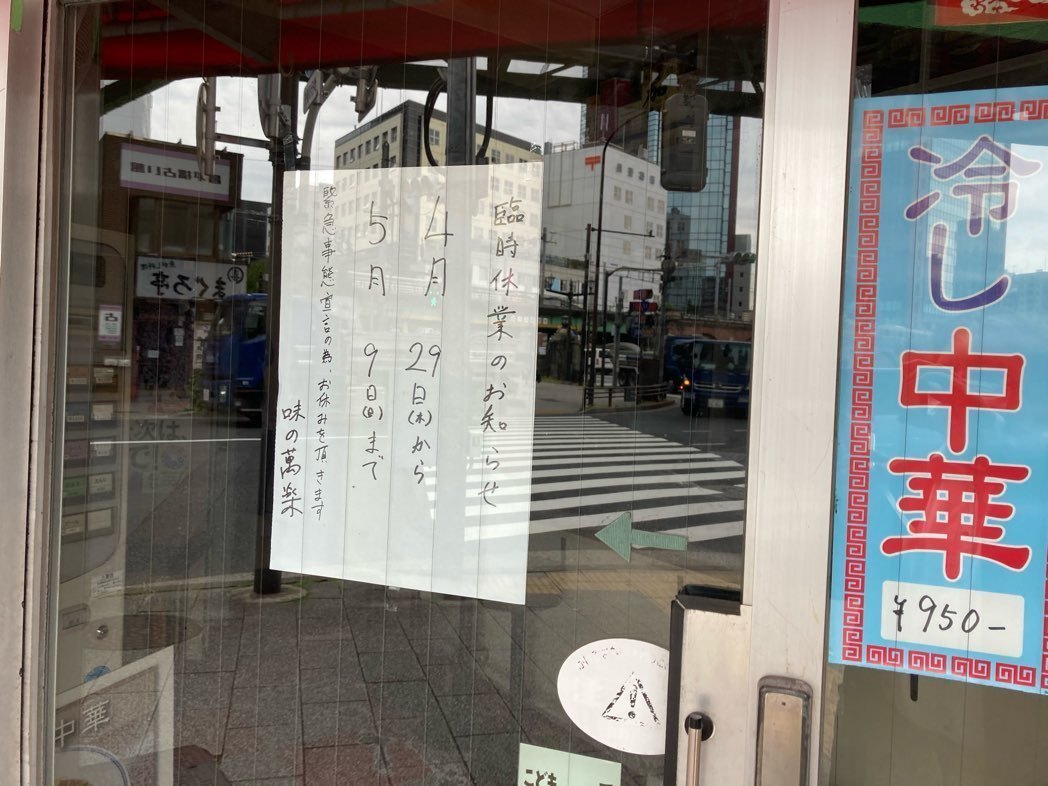 臨時休業のお知らせ
4月29日(木)から
5月9日(日)まで
緊急事態宣言の為、お休みを頂きます
味の萬楽
冷し中華
¥950-
まぐろ亭
中華
こども